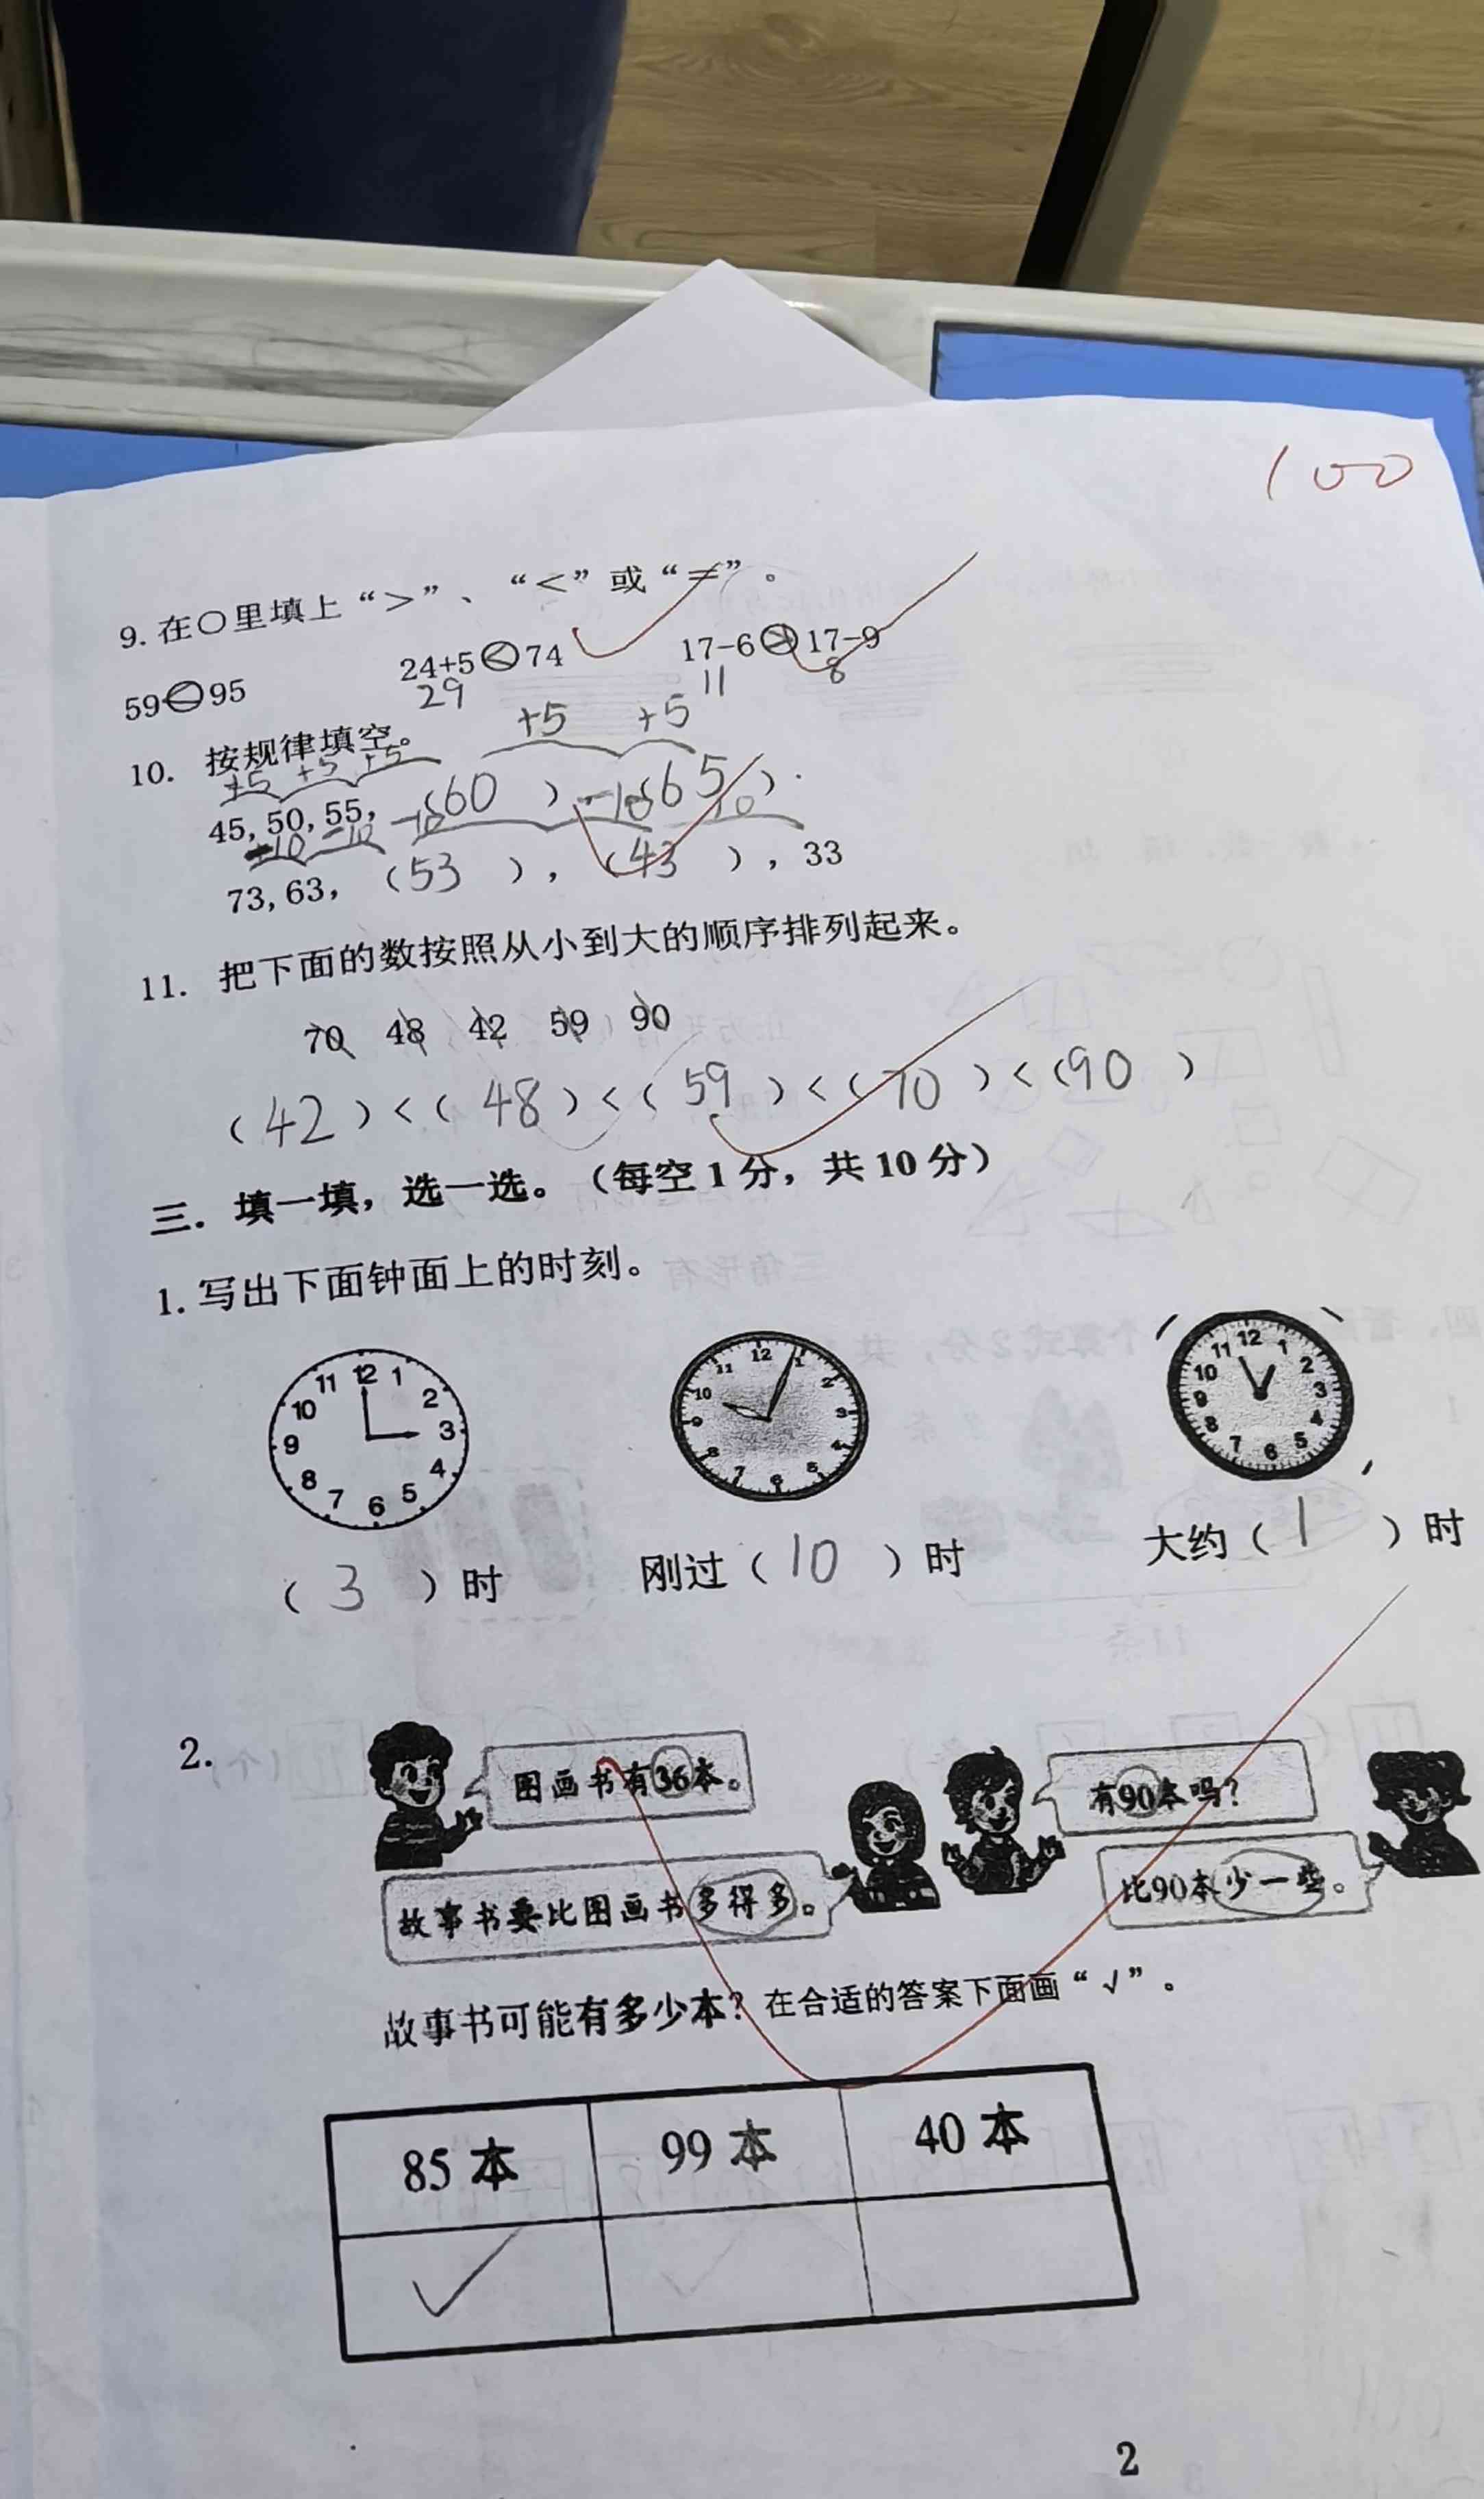 100
9. 在○里填上“＞”、“＜”或“＝”。
59<95 24+5<74 17-6>17-9
29 11 8
+5 +5
10. 按规律填空。
+5 +5 +5
45, 50, 55, (60), (65)
-10 -10 -10 -10 10
73, 63, (53), (43), 33
11. 把下面的数按照从小到大的顺序排列起来。
70 48 42 59 90
(42)<(48)<(59)<(70)<(90)
三. 填一填，选一选。（每空1分，共10分）
1. 写出下面钟面上的时刻。
12 1 2 3 4 5 6 7 8 9 10 11
12 1 2 3 4 5 6 7 8 9 10 11
12 1 2 3 4 5 6 7 8 9 10 11
(3)时 刚过(10)时 大约(1)时
2.
图画书有36本。
有90本吗？
故事书要比图画书多得多。
比90本少一些。
故事书可能有多少本？在合适的答案下面画“√”。
85本 99本 40本
✓
2